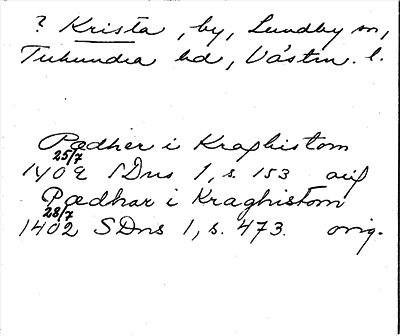 ? Krista, by, Lundby sn,
Tuhundra hd, Västm. l.
Pædher i Kraghistom
25/7
1402 SDns 1, s. 153
Pædhar i Kraghistom
28/7
1402 SDns 1, s. 473. orig.